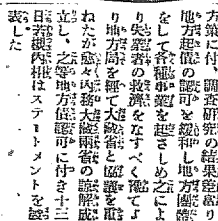 方策に付、調査研究の結果差當
地方起債の認可を緩和し地方團體
をして各種事業を起さしめ之によ
り失業者の救濟をなすべく豫てよ
り地方局を經て大藏省と協議を重
ねたが愈く内務大藏兩省の諒解成
立し、之等地方債認可に付き十三
日若槻内相はステートメントを發
表した